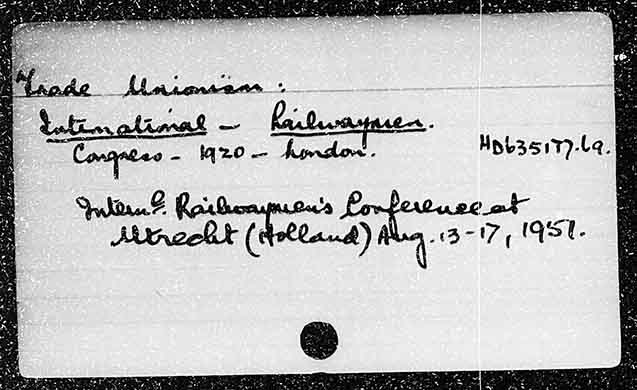 Trade Unionism:
International - Railwaymen.
Congress - 1920 - London. HD6351T7.L9.
Internl. Railwaymen's Conference at
Utrecht (Holland) Aug. 13-17, 1951.